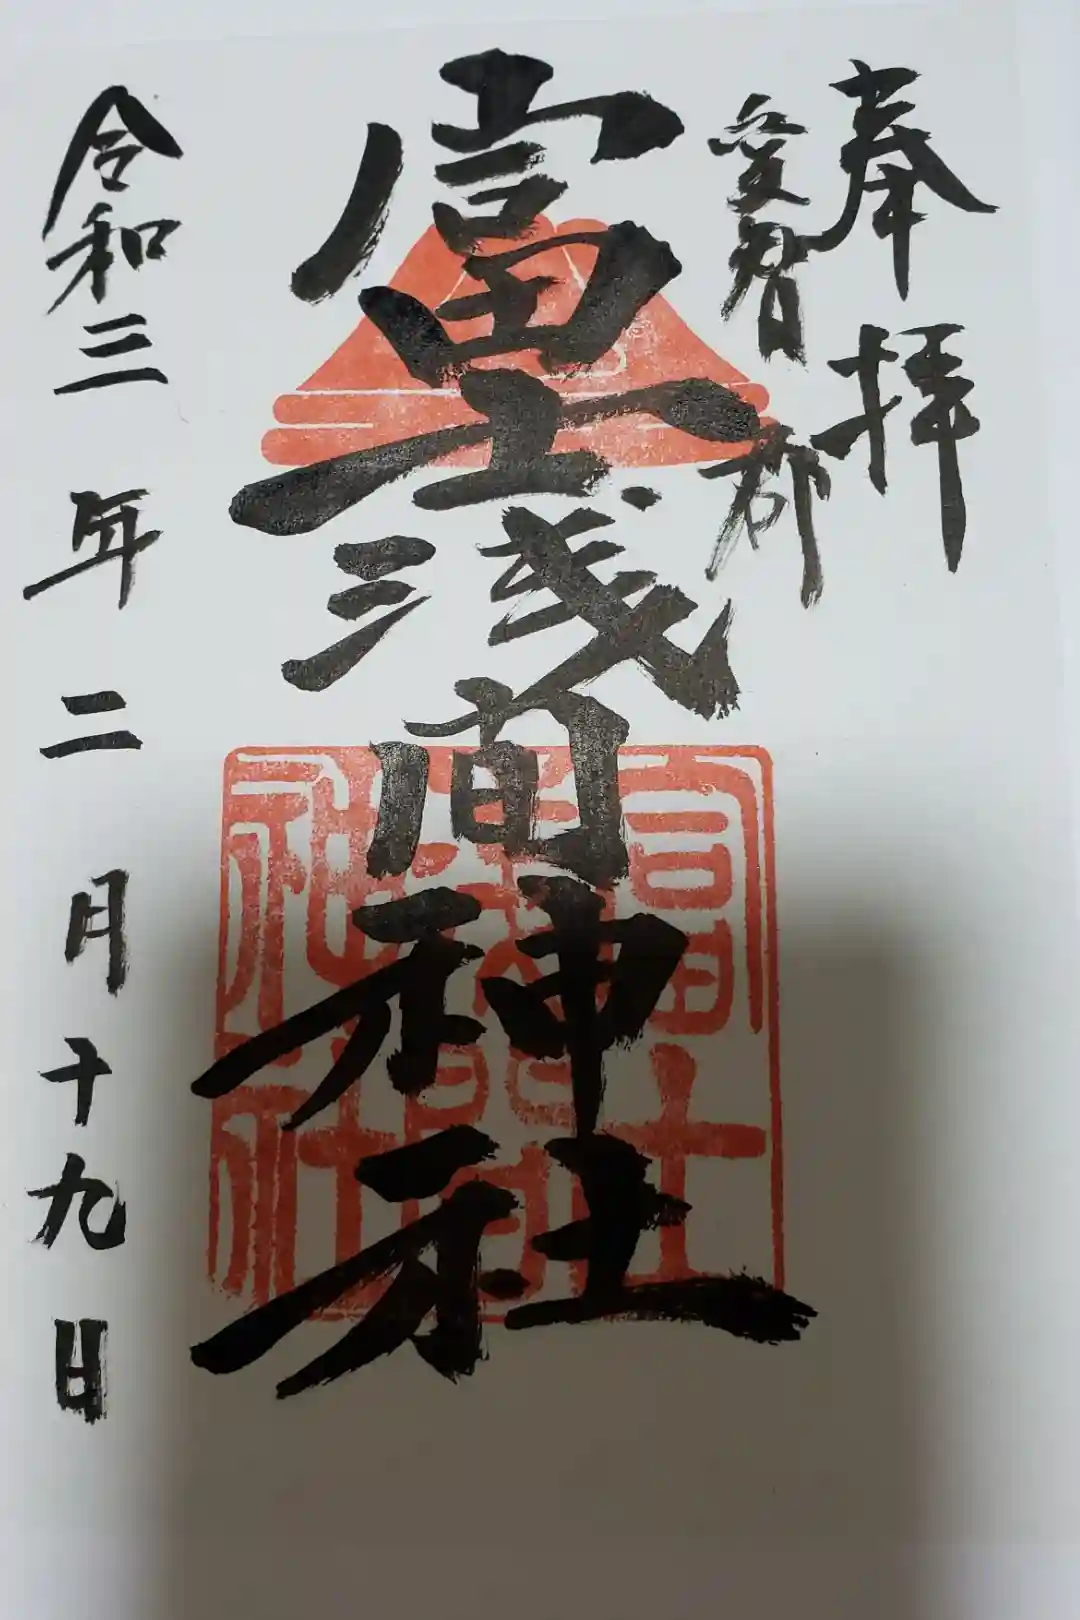 奉拝
愛智郡
富士浅間神社
富士浅間神社
令和三年二月十九日